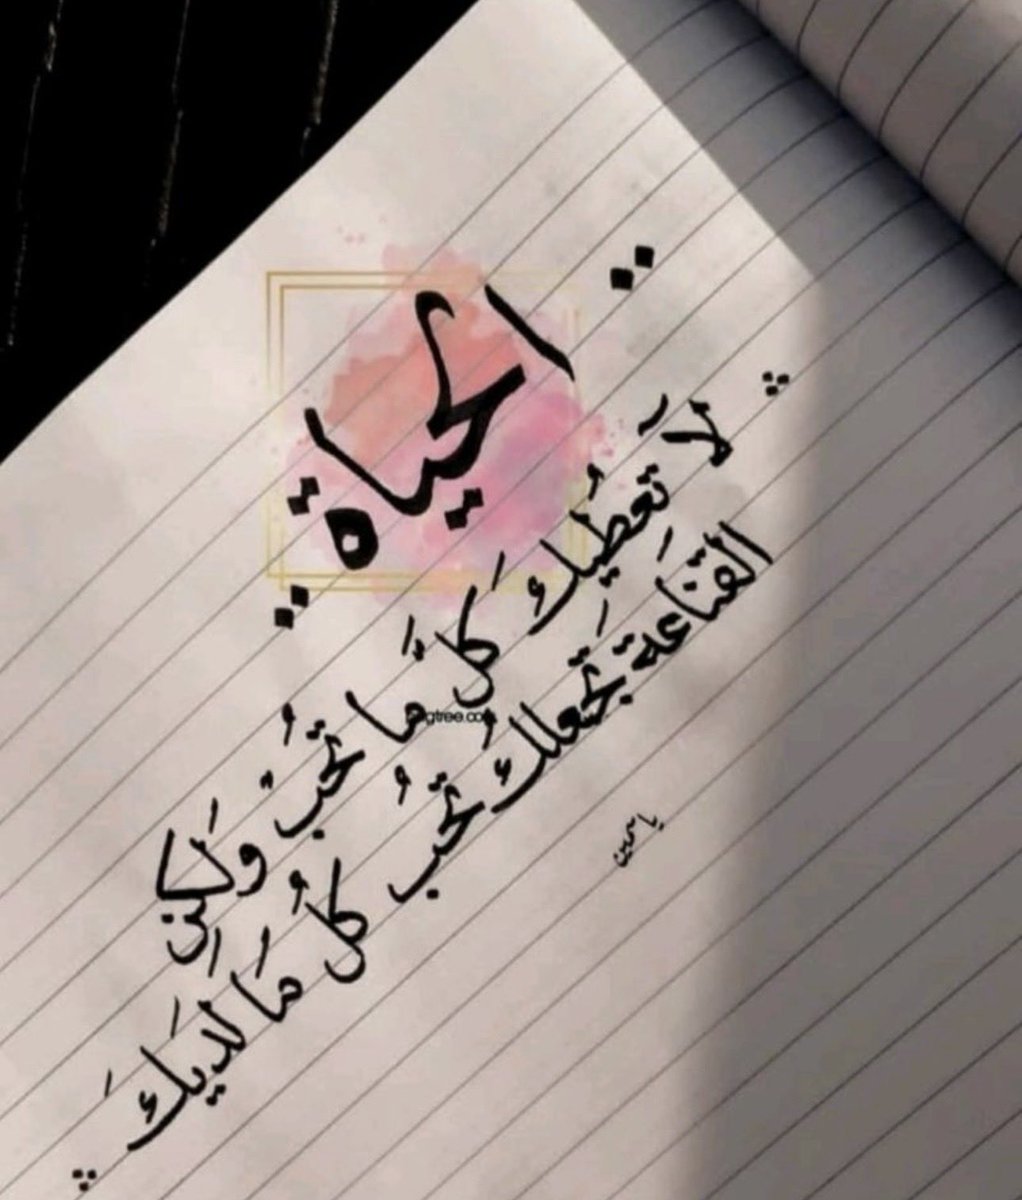 الحياة
لآ تعطيك كل ما تحب ولكن
القناعة تجعلك تحب كل ما لديك
ياسمين